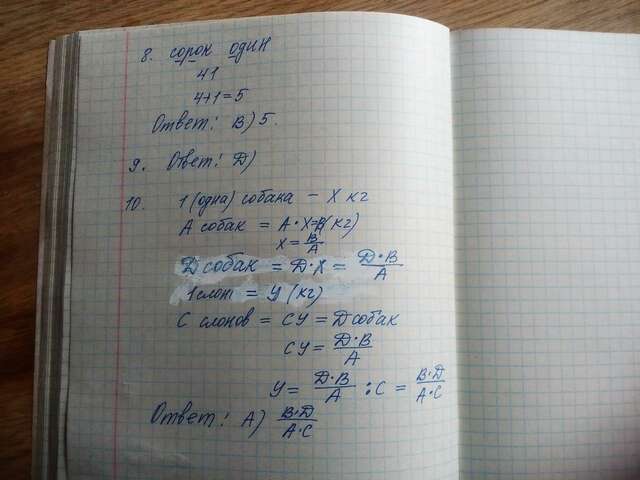 8. сорок один
41
4+1=5
Ответ: В) 5.
9. Ответ: Д)
10. 1 (одна) собака – X кг
А собак = А·X=В(кг)
X = В/А
Д собак = Д·X = Д·В/А
1 слон = У (кг)
С слонов = СУ = Д собак
СУ = Д·В/А
У = Д·В/А : С = В·Д/А·С
Ответ: А) В·Д/А·С